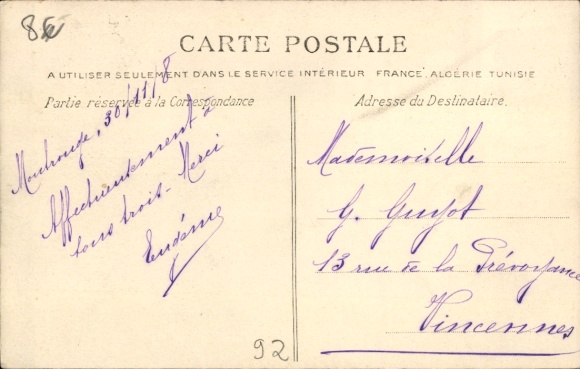 CARTE POSTALE
A UTILISER SEULEMENT DANS LE SERVICE INTÉRIEUR FRANCE, ALGÉRIE TUNISIE
Partie réservée à la Correspondance
Adresse du Destinataire.
Montrouge, 30/11/8
Affectueusement à
tous trois - Merci
Mademoiselle
G. Guyot
13 rue de la Prévoyance
Vincennes
92